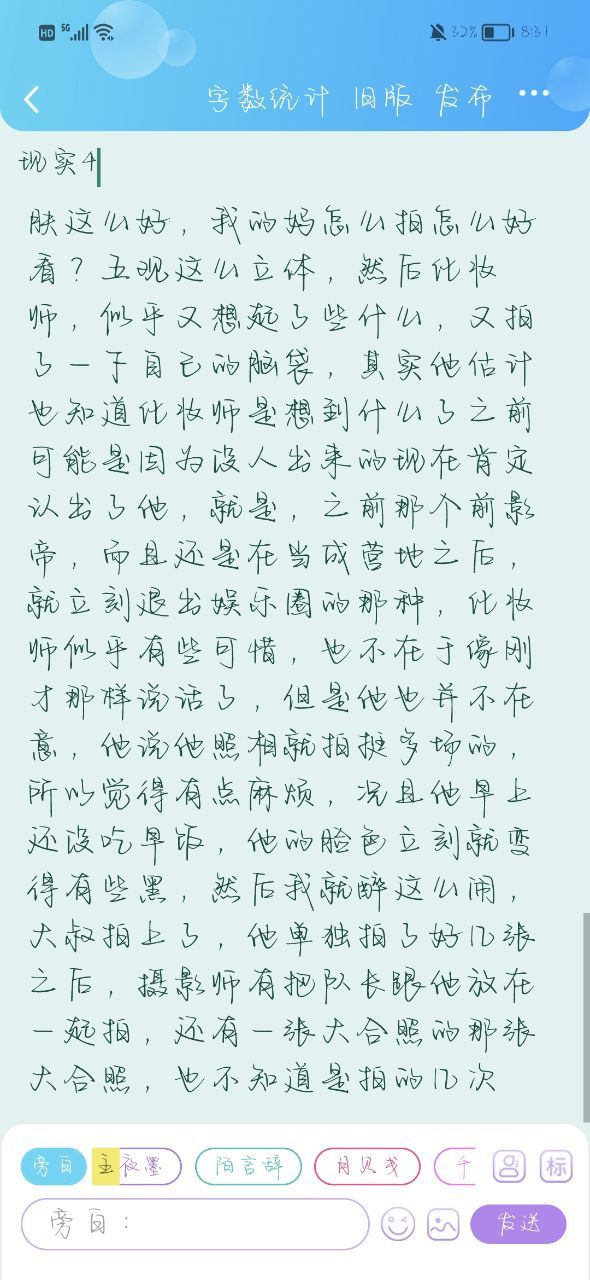 HD 5G 32% 8:31
字数统计 旧版 发布 ...
现实4
肤这么好，我的妈怎么拍怎么好
看？五观这么立体，然后化妆
师，似乎又想起了些什么，又拍
了一下自己的脑袋，其实他估计
也知道化妆师是想到什么了之前
可能是因为没人出来的现在肯定
认出了他，就是，之前那个前影
帝，而且还是在当成营地之后，
就立刻退出娱乐圈的那种，化妆
师似乎有些可惜，也不在于像刚
才那样说话了，但是他也并不在
意，他说他照相就拍挺多场的，
所以觉得有点麻烦，况且他早上
还没吃早饭，他的脸色立刻就变
得有些黑，然后我就醉这么闹，
大叔拍上了，他单独拍了好几张
之后，摄影师有把队长跟他放在
一起拍，还有一张大合照的那张
大合照，也不知道是拍的几次
旁白 主 夜墨 陌言辞 月贝戋 千 标
旁白： 发送